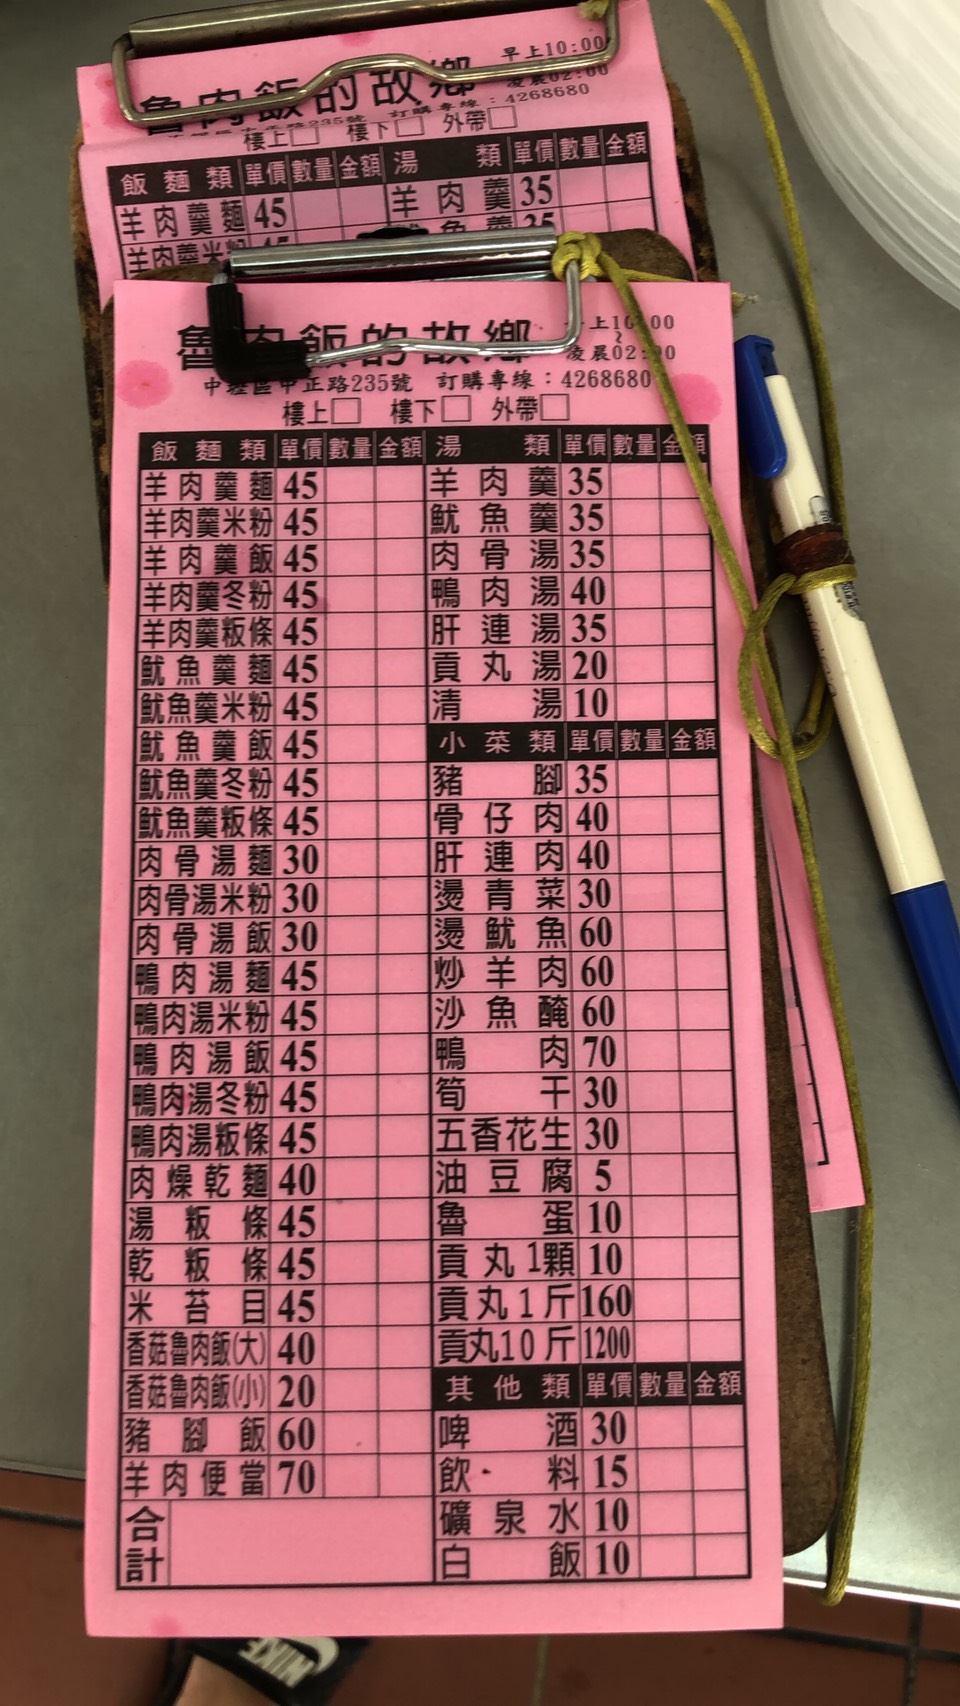 魯肉飯的故鄉
早上10:00
凌晨02:00
訂購專線：4268680
樓上 樓下 外帶
飯麵類 單價 數量 金額 湯類 單價 數量 金額
羊肉羹麵 45 羊肉羹 35
羊肉羹米粉 45 35
魯肉飯的故鄉
早上10:00
~
凌晨02:00
中壢區中正路235號 訂購專線：4268680
樓上 樓下 外帶
飯麵類 單價 數量 金額 湯類 單價 數量 金額
羊肉羹麵 45 羊肉羹 35
羊肉羹米粉 45 魷魚羹 35
羊肉羹飯 45 肉骨湯 35
羊肉羹冬粉 45 鴨肉湯 40
羊肉羹粄條 45 肝連湯 35
魷魚羹麵 45 貢丸湯 20
魷魚羹米粉 45 清湯 10
魷魚羹飯 45 小菜類 單價 數量 金額
魷魚羹冬粉 45 豬腳 35
魷魚羹粄條 45 骨仔肉 40
肉骨湯麵 30 肝連肉 40
肉骨湯米粉 30 燙青菜 30
肉骨湯飯 30 燙魷魚 60
鴨肉湯麵 45 炒羊肉 60
鴨肉湯米粉 45 沙魚醃 60
鴨肉湯飯 45 鴨肉 70
鴨肉湯冬粉 45 筍干 30
鴨肉湯粄條 45 五香花生 30
肉燥乾麵 40 油豆腐 5
湯粄條 45 魯蛋 10
乾粄條 45 貢丸1顆 10
米苔目 45 貢丸1斤 160
香菇魯肉飯(大) 40 貢丸10斤 1200
香菇魯肉飯(小) 20 其他類 單價 數量 金額
豬腳飯 60 啤酒 30
羊肉便當 70 飲料 15
合計 礦泉水 10
白飯 10
NIKE